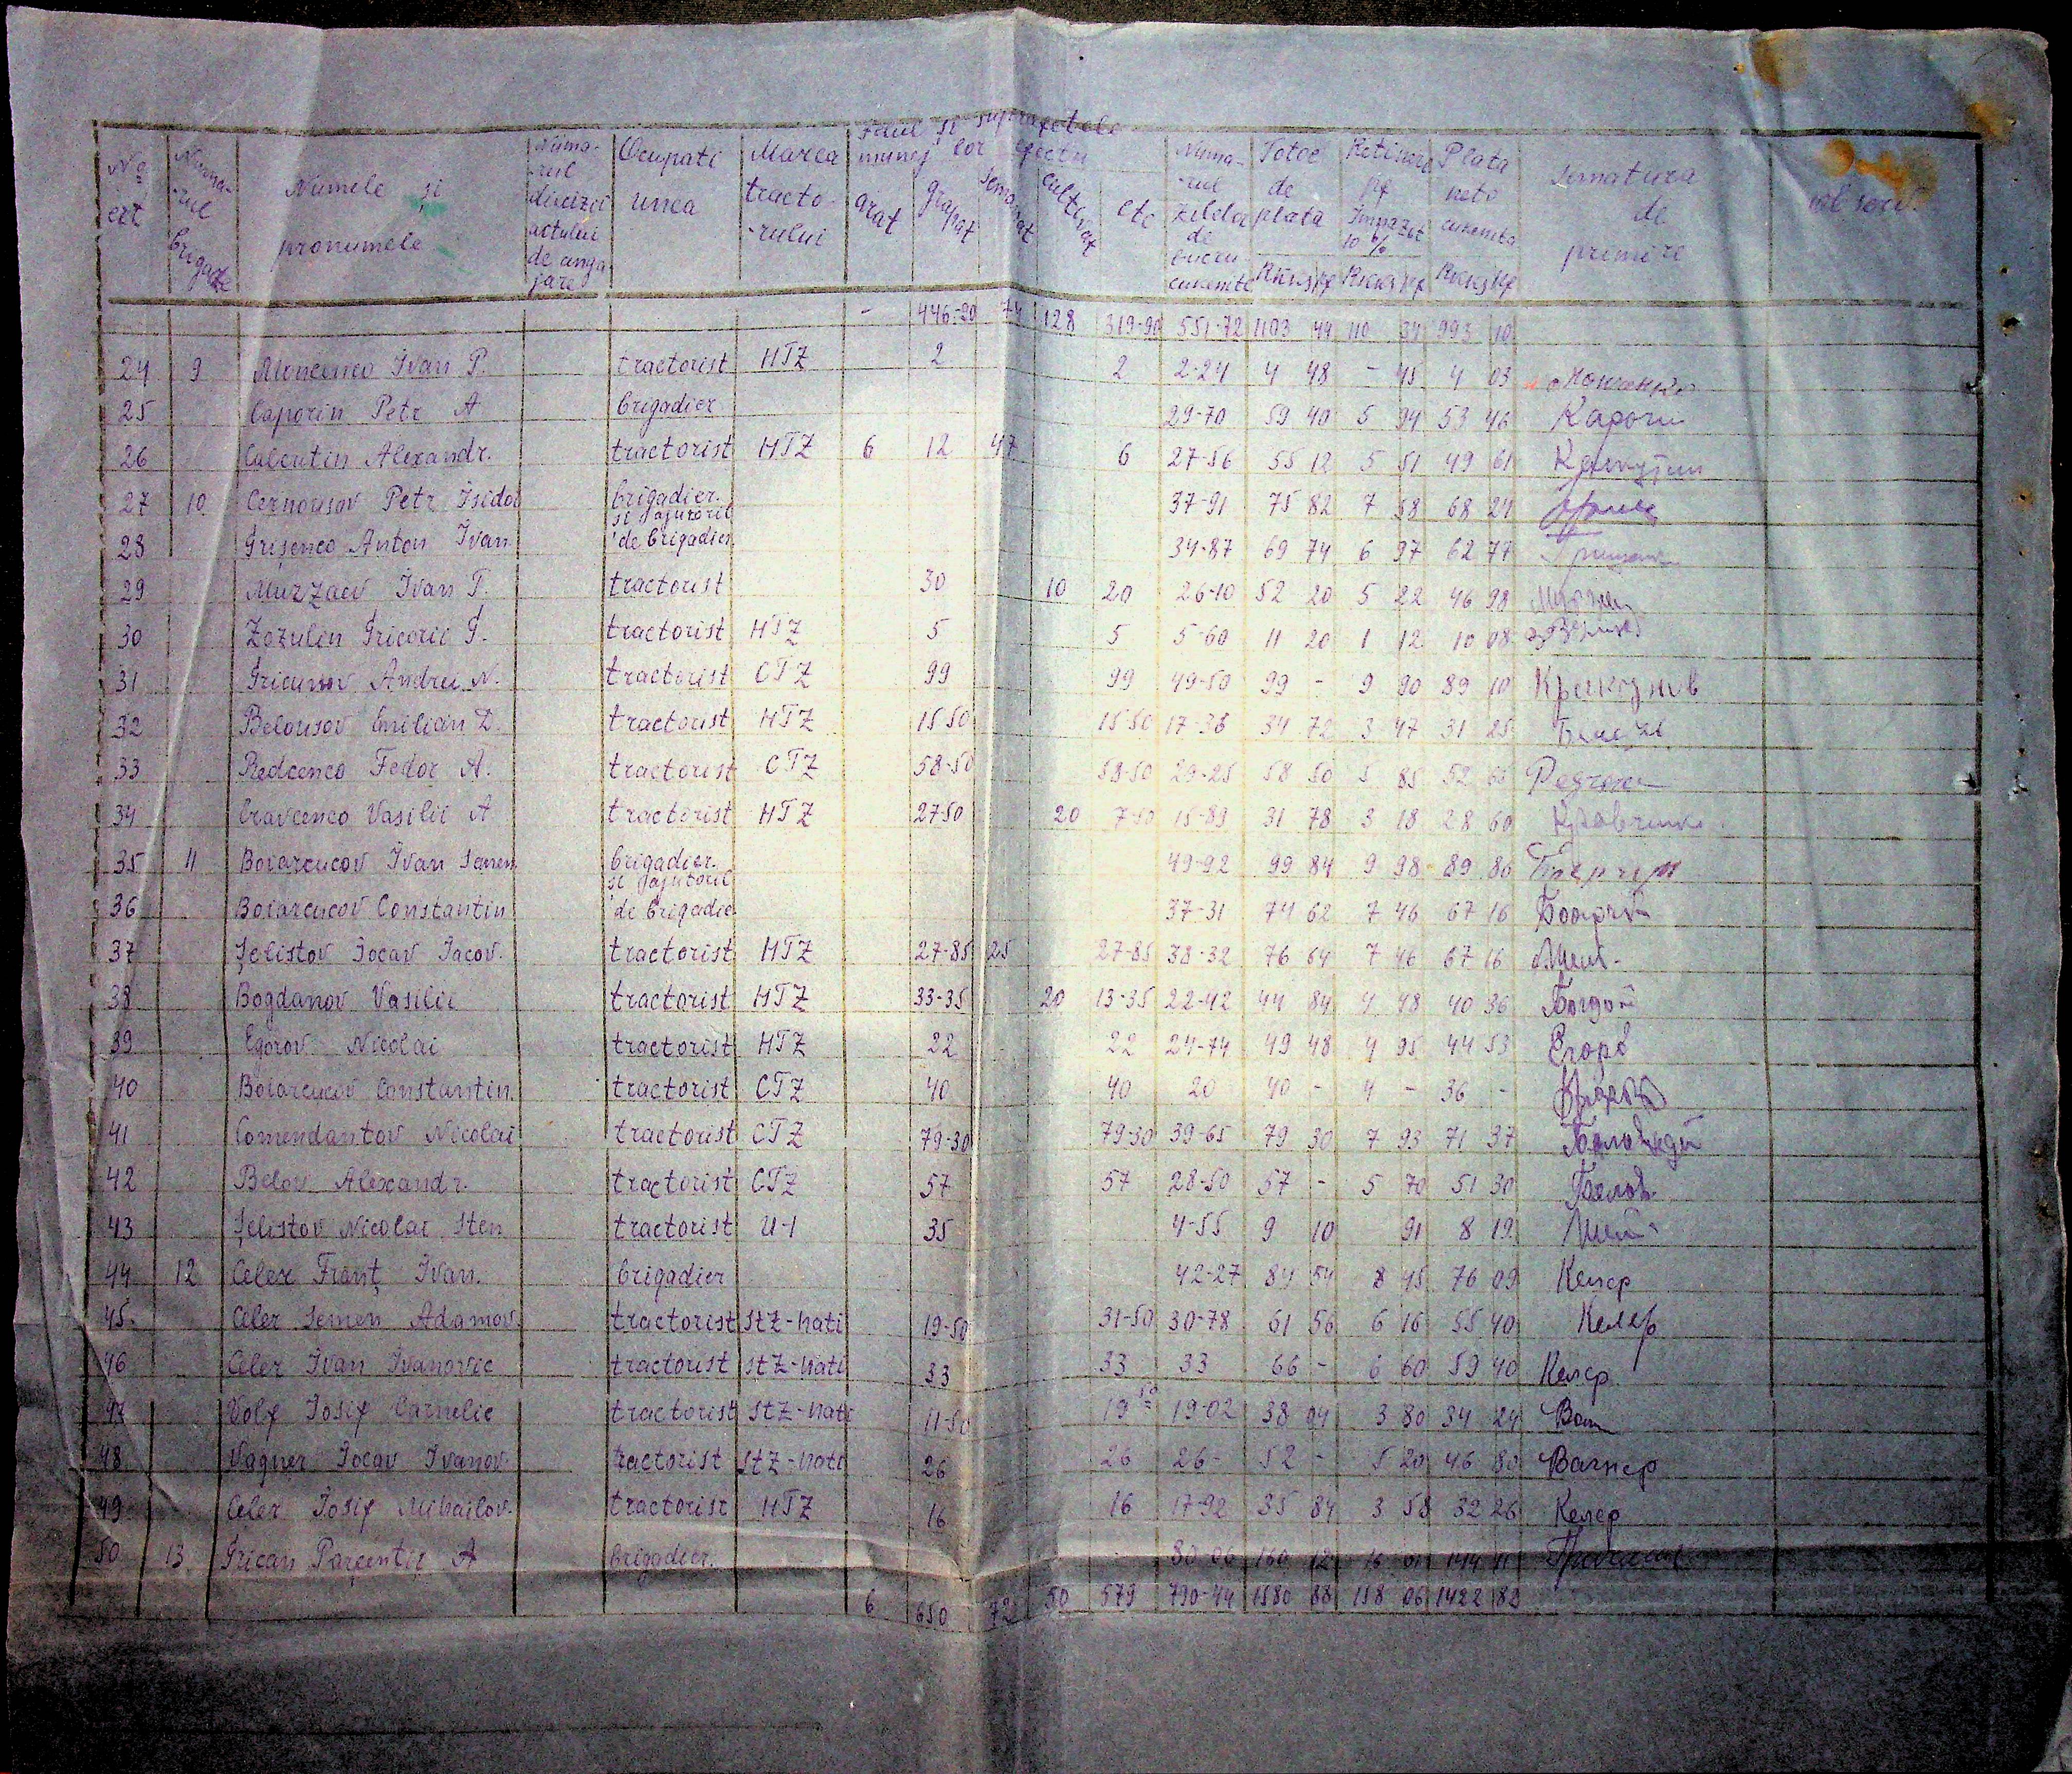 No ert
Numa-rul brigadei
Numele și pronumele
Numa-rul deciziei actului de anga jare
Ocupati unea
Marca tracto-rului
Felul si suprafetele muncilor efectu
arat
grapat
semanat
cultivat
etc
Numa-rul zilelor de lucru cuvenite
Totoe de plata RKKS Pf
Retinere pf Impozit 10% RKKS Pf
Plata neto cuvenita RKKS Pf
semnatura de primire
- 446-20 74 128 319-90 551-72 1103 44 110 34 993 10
24 9 Moncenco Ivan P. tractorist HTZ 2 2 2-24 4 48 - 45 4 03
25 Caporin Petr A brigadier 29-70 59 40 5 94 53 46 Капори
26 Calcutin Alexandr. tractorist HTZ 6 12 47 6 27-56 55 12 5 51 49 61
27 10 Cernousov Petr Isidor brigadier. 37-91 75 82 7 58 68 24
28 Grișenco Anton Ivan si ajutoril de brigadier 34-87 69 74 6 97 62 77
29 Murzaev Ivan T. tractorist 30 10 20 26-10 52 20 5 22 46 98
30 Zozulin Gricorii G. tractorist HTZ 5 5 5-60 11 20 1 12 10 08
31 Gricunov Andrei N. tractorist CTZ 99 99 49-50 99 - 9 90 89 10
32 Belousov Emilian D. tractorist HTZ 15-50 15-50 17-36 34 72 3 47 31 25
33 Redcenco Fedor A. tractorist CTZ 58-50 58-50 29-25 58 50 5 85 52 65
34 Cravcenco Vasilii A tractorist HTZ 27-50 20 7-50 15-89 31 78 3 18 28 60
35 11 Boiarcucov Ivan Semen brigadier. 49-92 99 84 9 98 89 86
36 Boiarcucov Constantin si ajutoril de brigadie 37-31 74 62 7 46 67 16
37 Șelistov Iocav Iacov. tractorist HTZ 27-85 25 27-85 38-32 76 64 7 46 67 16
38 Bogdanov Vasilii tractorist HTZ 33-35 20 13-35 22-42 44 84 4 48 40 36
39 Egorov Nicolai tractorist HTZ 22 22 24-74 49 48 4 95 44 53 Егоров
40 Boiarcucov Constantin. tractorist CTZ 40 40 20 40 - 4 - 36 -
41 Comendantov Nicolai tractorist CTZ 79-30 79-30 39-65 79 30 7 93 71 37
42 Belov Alexandr. tractorist CTZ 57 57 28-50 57 - 5 70 51 30 Белов
43 Șelistov Nicolai Sten tractorist U-1 35 4-55 9 10 91 8 19
44 12 Celer Franț Ivan. brigadier 42-27 84 54 8 45 76 09 Келер
45. Celer Semen Adamov. tractorist STZ-Nati 19-50 31-50 30-78 61 56 6 16 55 40 Келер
46 Celer Ivan Ivanovic tractorist STZ-Nati 33 33 33 66 - 6 60 59 40 Келер
47 Volf Iosif Carnelie tractorist STZ-Nati 11-50 19 50 19-02 38 04 3 80 34 24
48 Vagner Iocav Ivanov. tractorist STZ-Nati 26 26 26- 52 - 5 20 46 80 Вагнер
49 Celer Iosif Mihailov. tractorist HTZ 16 16 17-92 35 84 3 58 32 26 Келер
50 13. Grican Parfentii A brigadier. 80-06 160 12 16 01 144 11
6 650 72 50 579 790-44 1580 88 158 06 1422 82